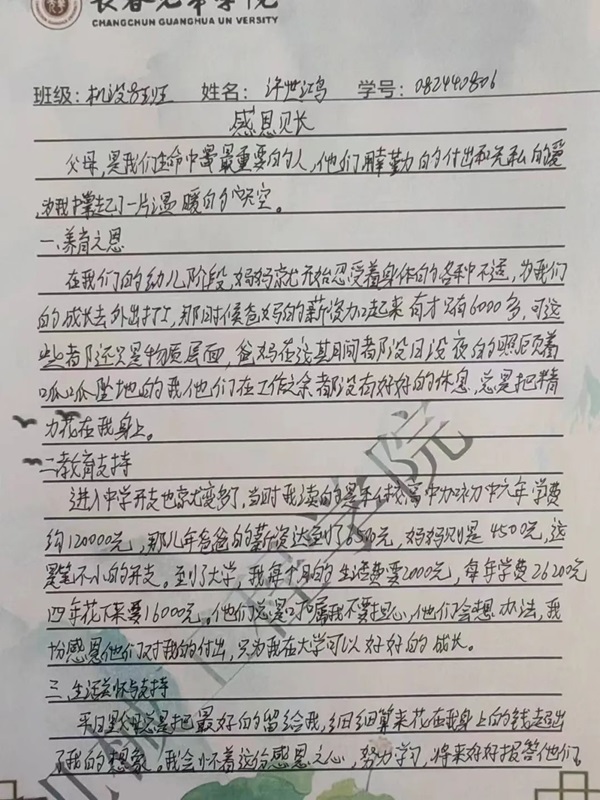 长春光华学院
CHANGCHUN GUANGHUA UN VERSITY
班级: 机设 姓名: 许世鸿 学号: 082440806
感恩成长
父母,是我们生命中最最重要的人,他们用辛勤的付出和无私的爱
为我撑起了一片温暖的天空。
一.养育之恩
在我们的幼儿阶段,妈妈就开始忍受着身体的各种不适,为我们
的成长去外出打工,那时候爸妈的薪资加起来有才只有6000多,可这
些都还只是物质层面,爸妈在这其间都没日没夜的照顾着
呱呱坠地的我他们在工作之余都没有好好的休息,总是把精
力花在我身上。
二教育支持
进入中学开支也就变多了,当时我读的是 校高中加初中六年学费
约120000元,那几年爸爸的薪资达到了6500元,妈妈则是4500元,这
是笔不小的开支。到了大学,我每个月的生活费要2000元,每年学费26200元
四年花下来要16000元。他们总是叮嘱我不要担心,他们会想办法,我
感恩他们对我的付出,只为我在大学可以好好的成长。
三.生活关怀与支持
平日里父母总是把最好的留给我,细细算来花在我身上的钱超出
了我的想象。我会怀着这份感恩之心,努力学习,将来好好报答他们。
机械工程学院